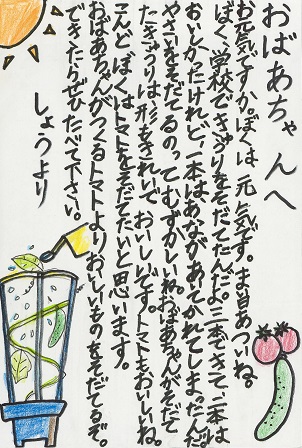 おばあちゃんへ
お元気ですか。ぼくは元気です。まい日あついね。
ぼく、学校できゅうりをそだてたんだよ。三本できて、二本は
おいしかったけれど、一本はあながあいてかれてしまったんだ。
やさいをそだてるのってむずかしいね。おばあちゃんがそだて
たきゅうりは形もきれいで、おいしいです。トマトもおいしいね。
こんど、ぼくはトマトをそだてたいと思います。
おばあちゃんがつくるトマトよりおいしいものをそだてるぞ。
できたらぜひ、たべて下さい。
しょうより